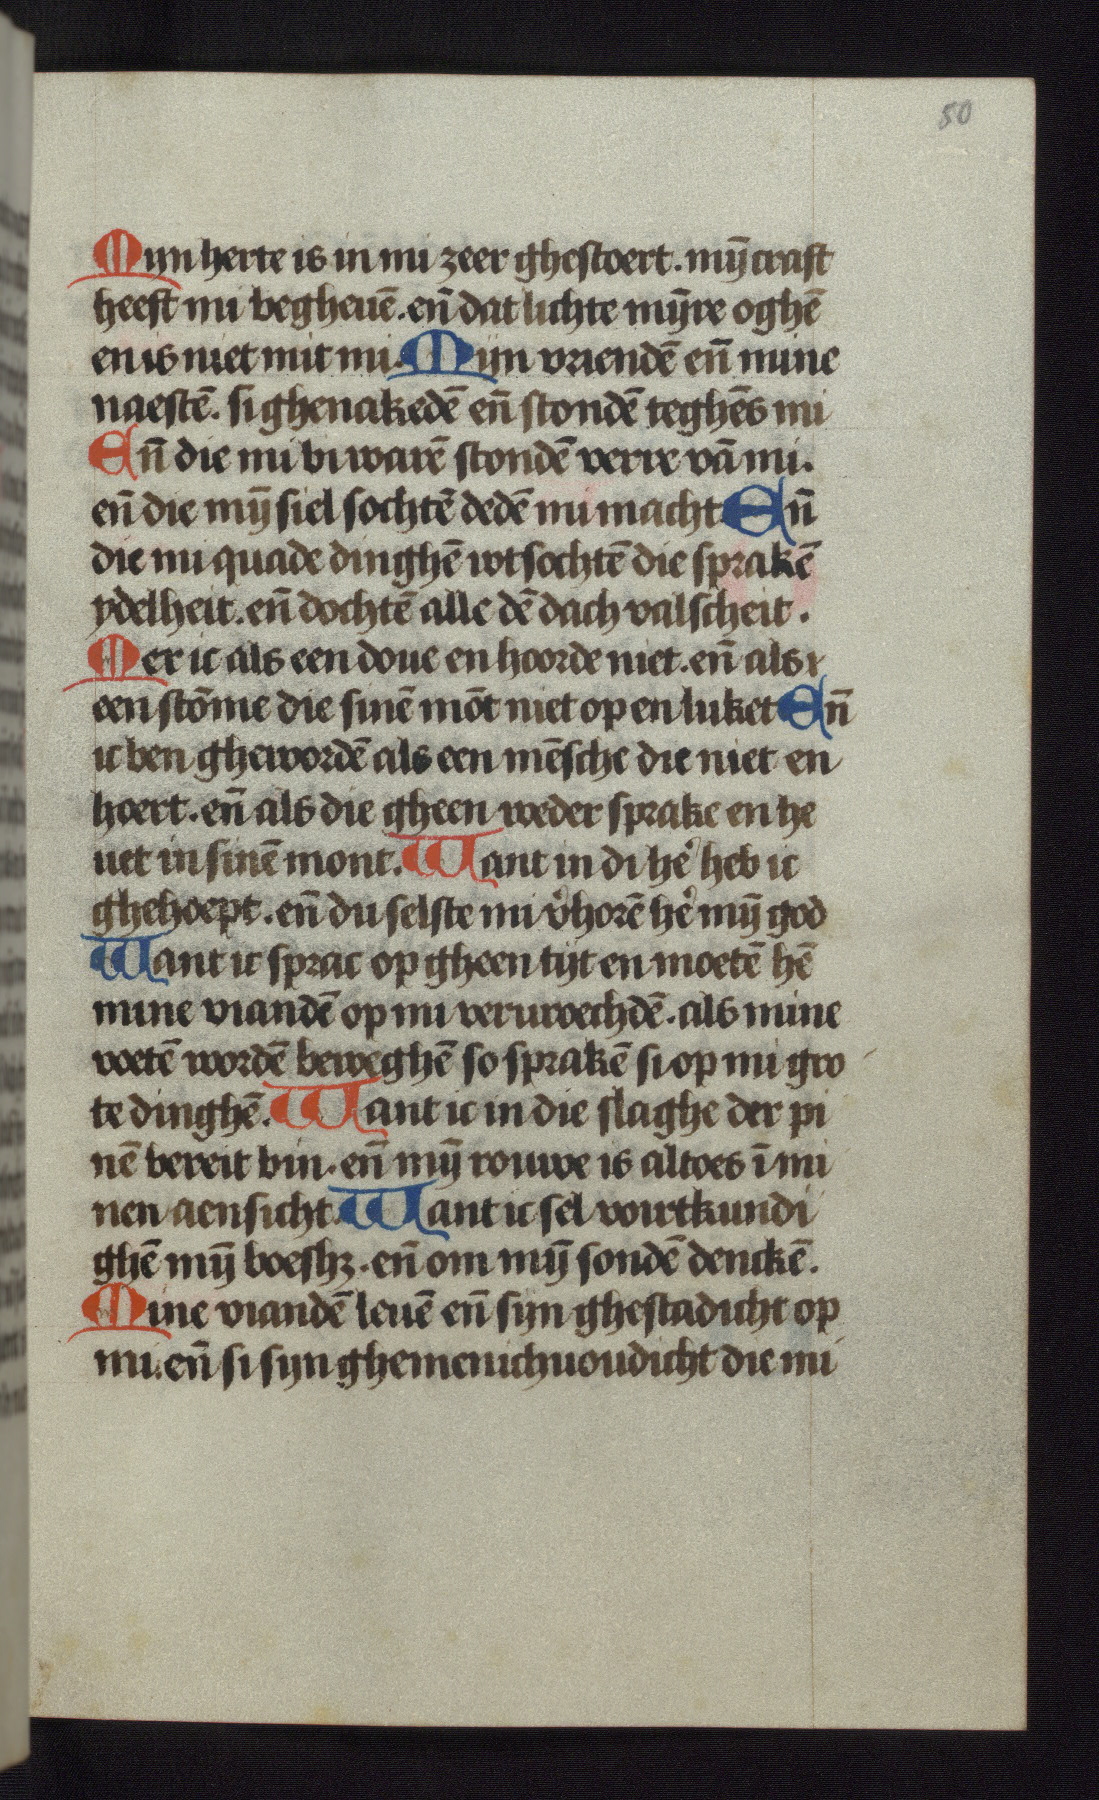 50
Mijn herte is in mi zeer ghestoert. mȳ craft
heeft mi begheuē. en̄ dat lichte mȳre oghē
en is niet mit mi. Mijn vriendē en̄ mine
naestē. si ghenakedē en̄ stondē teghēs mi
En̄ die mi bi warē stondē verre vā mi.
en̄ die mȳ siel sochtē dedē mi macht. En̄
die mi quade dinghē wtsochtē die sprakē
ydelheit. en̄ dochtē alle dē dach valscheit.
Mer ic als een doue en hoorde niet. en̄ als
een stōme die sinē mōt niet op en luket En̄
ic ben ghewordē als een mēsche die niet en
hoert. en̄ als die gheen weder sprake en he
uet in sinē mont. Want in di hē heb ic
ghehoept. en̄ du selste mi v̾horē hē mȳ god
Want ic sprac op gheen tijt en moetē hē
mine viandē op mi veruroechdē. als mine
voetē wordē beweghē so sprakē si op mi gro
te dinghē. Want ic in die slaghe der pi
nē bereit bin. en̄ mȳ rouwe is altoes ī mi
nen aensicht. Want ic sel voirtkundi
ghē mȳ boeshꝫ. en̄ om mȳ sondē denckē.
Mine viandē leuē en̄ sijn ghestadicht op
mi. en̄ si sijn ghemenichuoudicht die mi